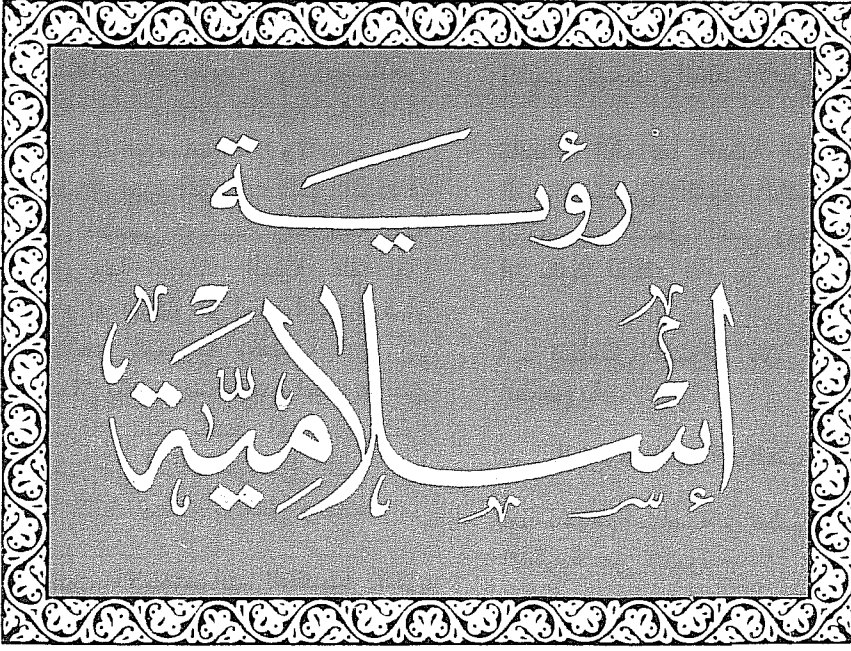 رؤية
إسلامية